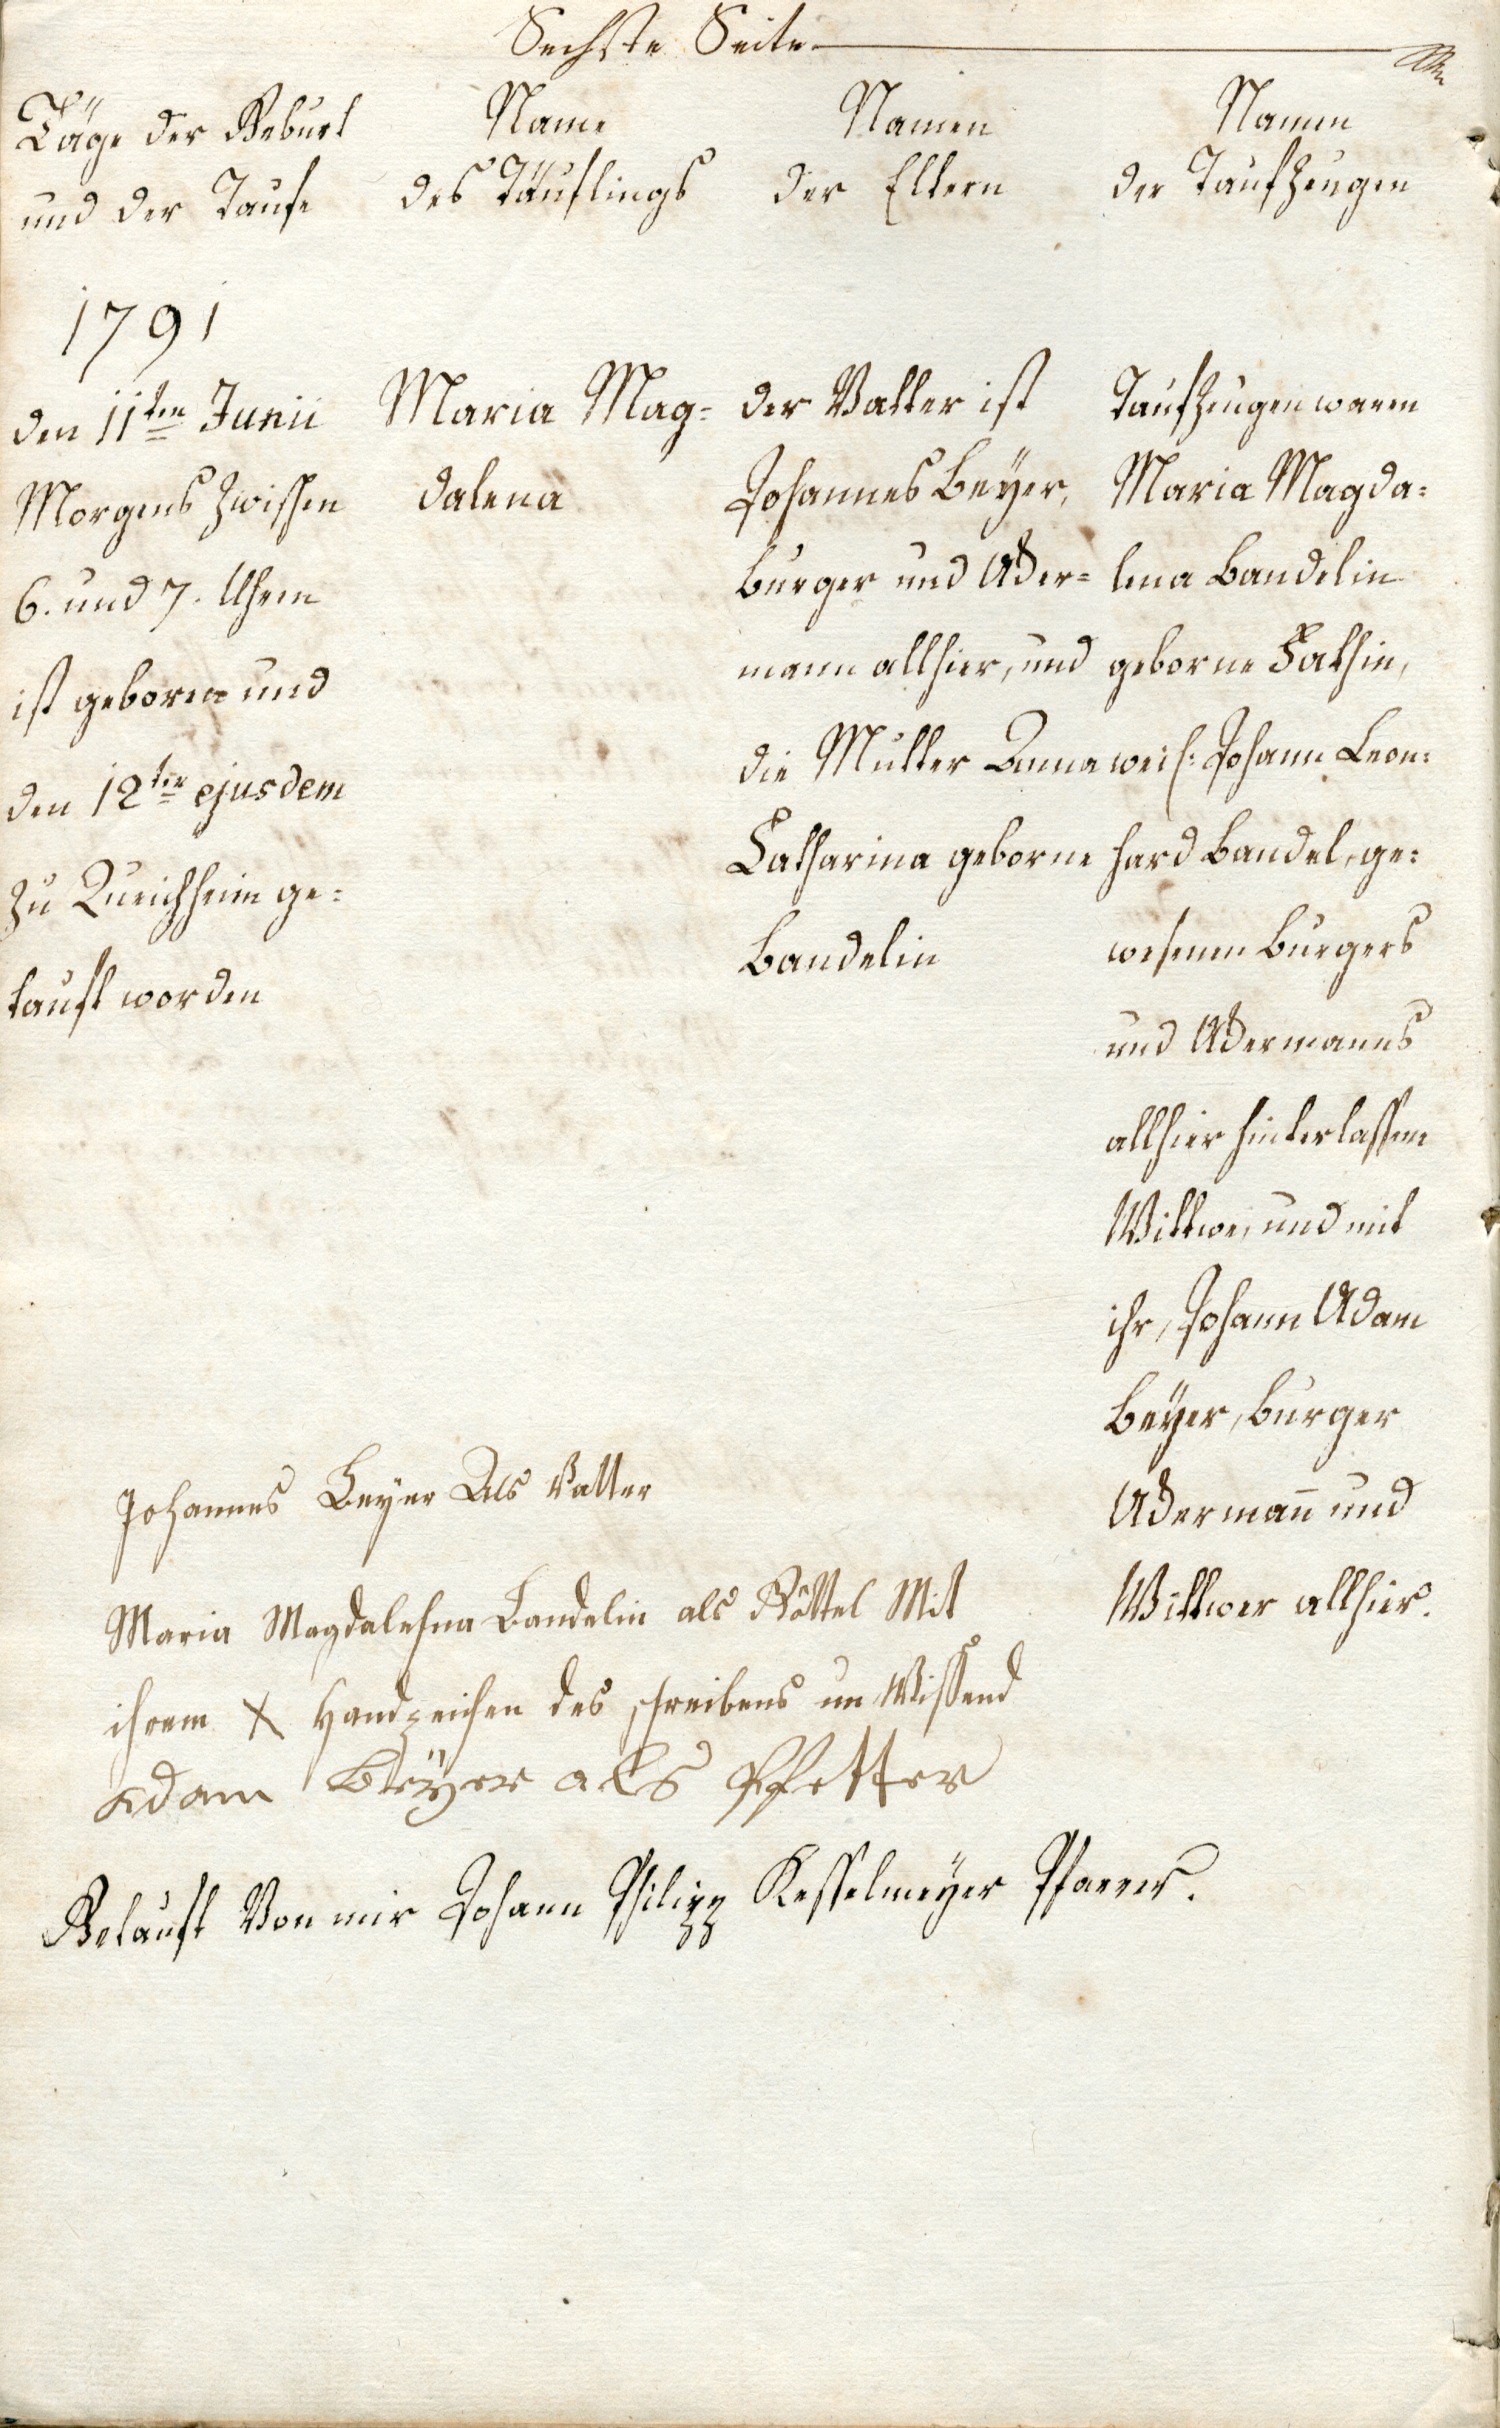 Sechste Seite
Täge der Geburt
und der Taufe
Name
des Täuflings
Namen
der Eltern
Namen
der Taufzeugen
1791
den 11ten Junii
Morgens zwischen
6. und 7. Uhren
ist geboren und
den 12ten ejusdem
zu Queichheim ge=
tauft worden
Maria Mag=
dalena
der Vatter ist
Johannes Beyer,
burger und Acker=
mann allhier, und
die Mutter Anna
Catharina geborne
Bandelin
Taufzeugen waren
Maria Magda=
lena Bandelin
geborne
weil: Johann Leon=
hard Bandel, ge=
wesenen burgers
und Ackermanns
allhier hinterlassene
Wittwe, und mit
ihr, Johann Adam
Beÿer, burger
Ackermann̄ und
Wittwer allhier.
Johannes Beyer Als Vatter
Maria Magdalehna Bandelin als Göttel Mit
ihrem X Handzeichen des schreibens un Wissend
adam Beÿer als Pfetter
Getauft Von mir Johann Philipp Kesselmeÿer Pfarrer.